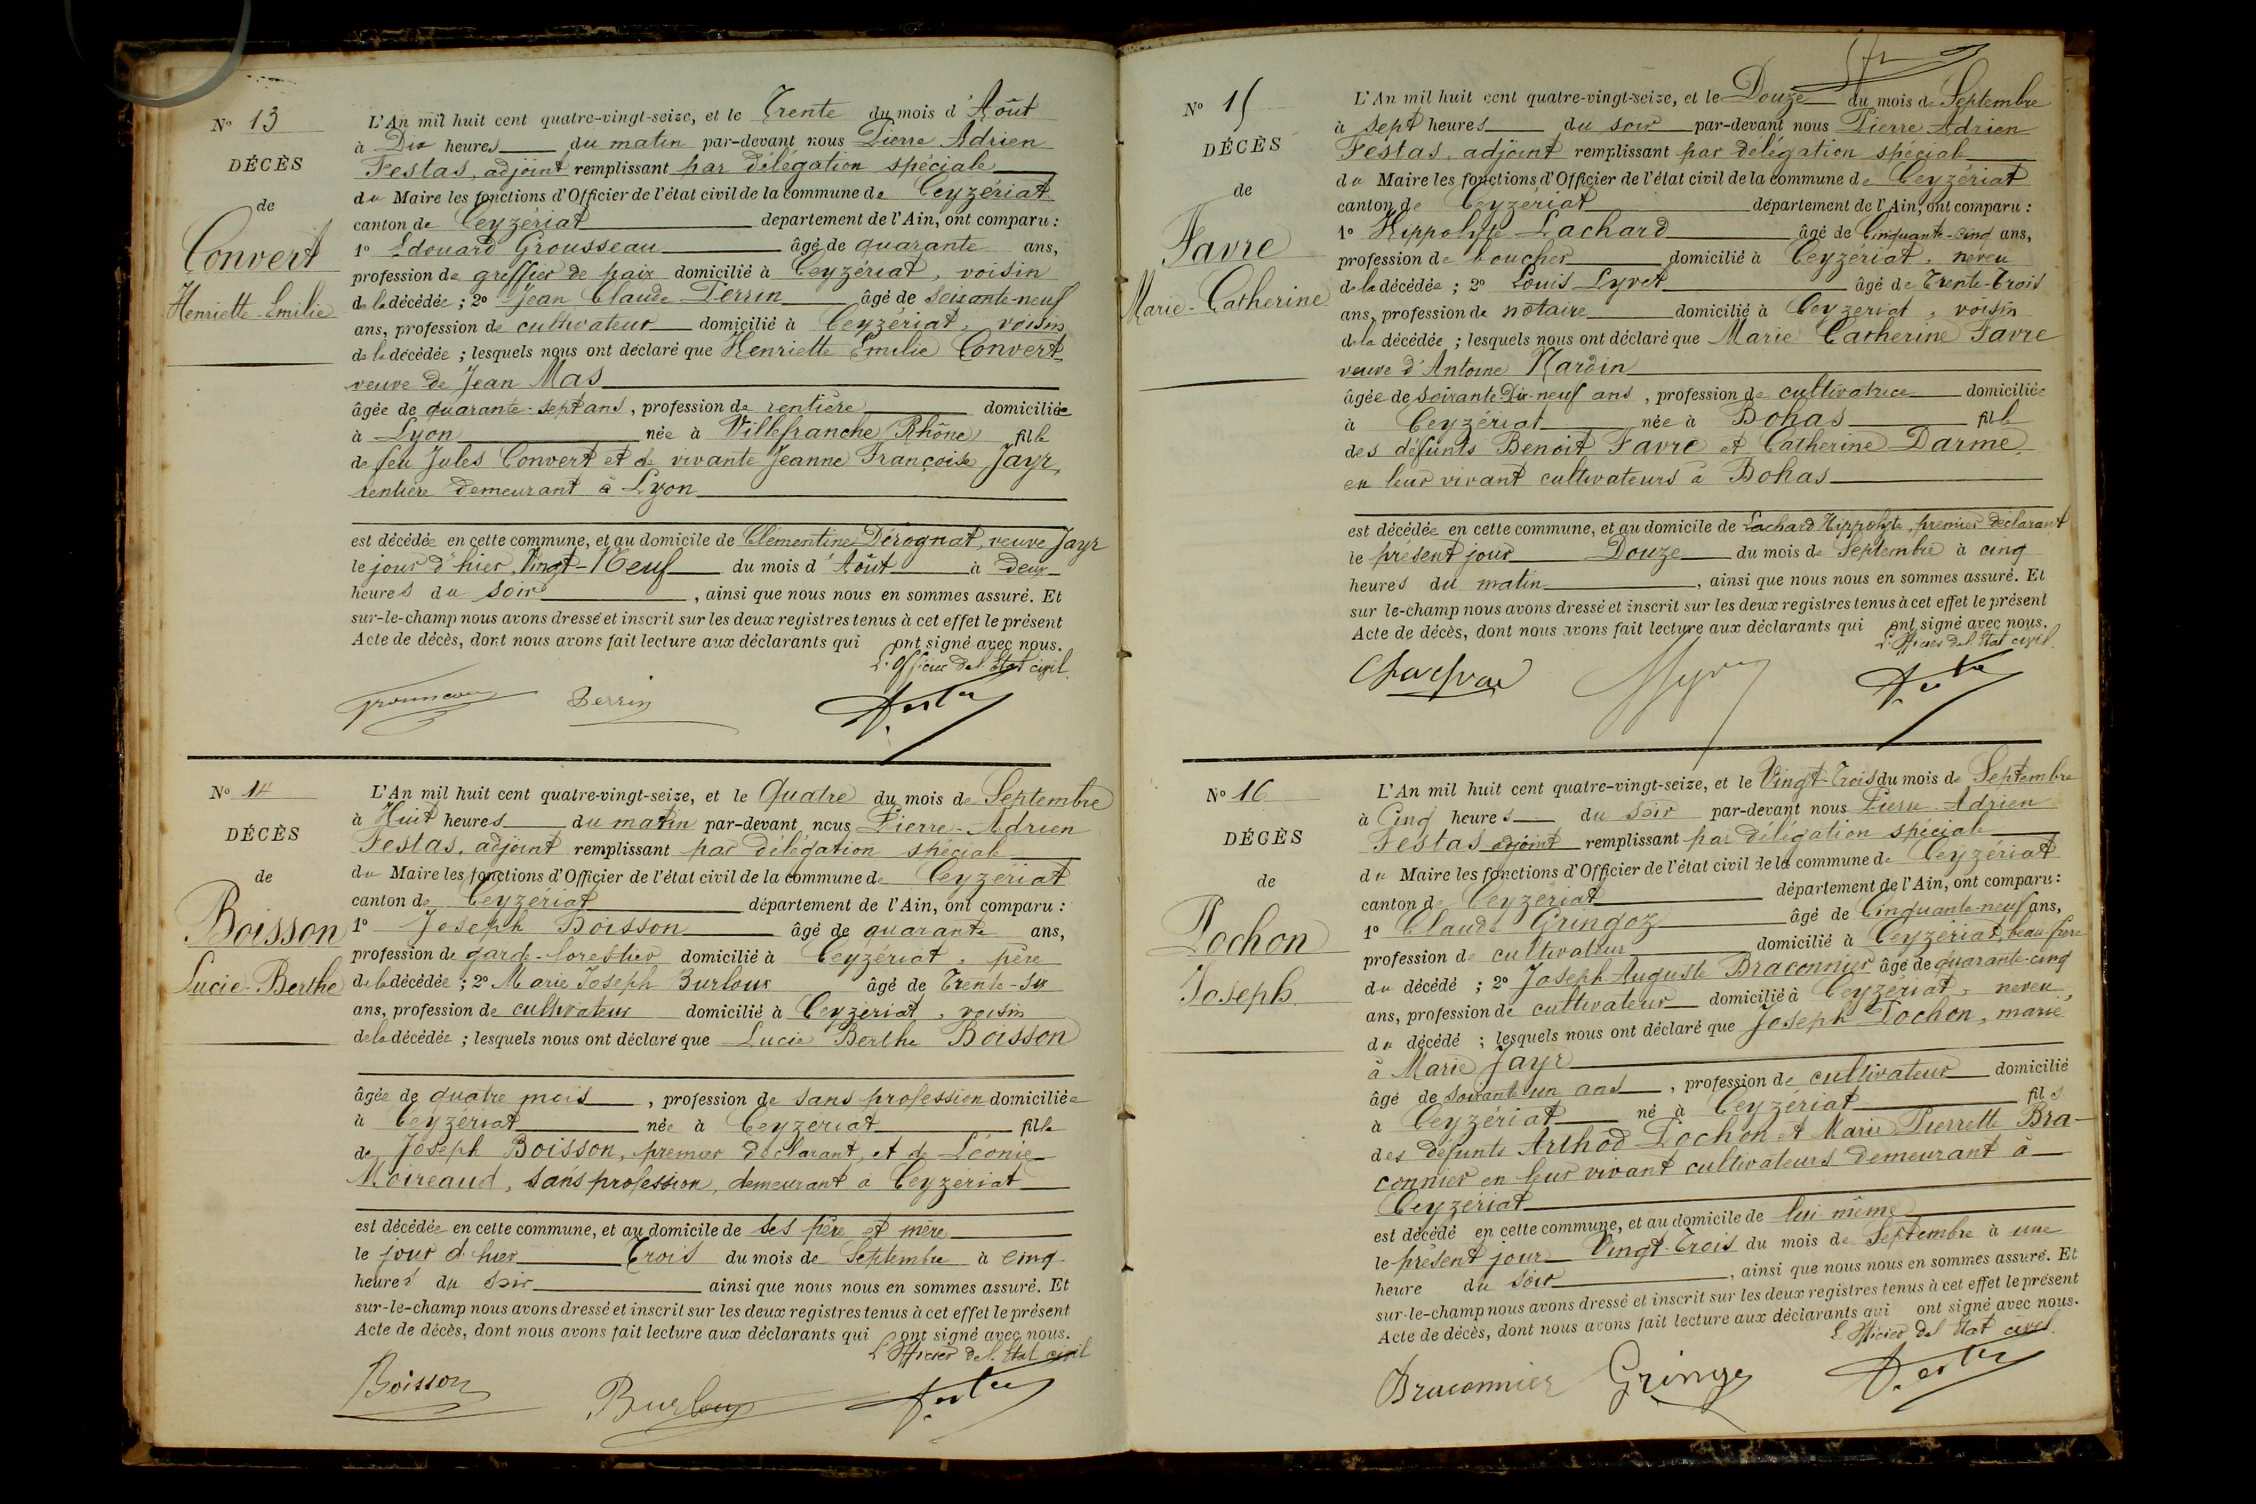 N° 13
DÉCÈS
de
Convert
Henriette-Emilie
L'An mil huit cent quatre-vingt-seize, et le Trente du mois d'Août
à Dix heures du matin par-devant nous Pierre Adrien
Festas, adjoint remplissant par délégation spéciale
du Maire les fonctions d'Officier de l'état civil de la commune de Ceyzériat
canton de Ceyzériat département de l'Ain, ont comparu :
1° Edouard Grousseau âgé de quarante ans,
profession de greffier de paix domicilié à Ceyzériat, voisin
de la décédée ; 2° Jean Claude Perrin âgé de soixante-neuf
ans, profession de cultivateur domicilié à Ceyzériat, voisin
de la décédée ; lesquels nous ont déclaré que Henriette Emilie Convert
veuve de Jean Mas
âgée de quarante-sept ans, profession de rentière domiciliée
à Lyon née à Villefranche (Rhône) fille
de feu Jules Convert et de vivante Jeanne Françoise Jayr,
rentière demeurant à Lyon
est décédée en cette commune, et au domicile de Clémentine Dérognat, veuve Jayr
le jour d'hier, Vingt-Neuf du mois d'Août à deux
heures du soir, ainsi que nous nous en sommes assuré. Et
sur-le-champ nous avons dressé et inscrit sur les deux registres tenus à cet effet le présent
Acte de décès, dont nous avons fait lecture aux déclarants qui ont signé avec nous.
L'Officier de l'Etat civil
Perrin
N° 14
DÉCÈS
de
Boisson
Lucie-Berthe
L'An mil huit cent quatre-vingt-seize, et le Quatre du mois de Septembre
à Huit heures du matin par-devant nous Pierre-Adrien
Festas, adjoint remplissant par délégation spéciale
du Maire les fonctions d'Officier de l'état civil de la commune de Ceyzériat
canton de Ceyzériat département de l'Ain, ont comparu :
1° Joseph Boisson âgé de quarante ans,
profession de garde-forestier domicilié à Ceyzériat, père
de la décédée ; 2° Marie Joseph Burloux âgé de Trente-six
ans, profession de cultivateur domicilié à Ceyzériat, voisin
de la décédée ; lesquels nous ont déclaré que Lucie Berthe Boisson
âgée de quatre mois, profession de sans profession domiciliée
à Ceyzériat née à Ceyzériat fille
de Joseph Boisson, premier déclarant, et de Léonie
Moireaud, sans profession, demeurant à Ceyzériat
est décédée en cette commune, et au domicile de ses père et mère
le jour d'hier Trois du mois de Septembre à cinq
heures du soir ainsi que nous nous en sommes assuré. Et
sur-le-champ nous avons dressé et inscrit sur les deux registres tenus à cet effet le présent
Acte de décès, dont nous avons fait lecture aux déclarants qui ont signé avec nous.
L'Officier de l'Etat civil
Boisson
N° 15
DÉCÈS
de
Favre
Marie-Catherine
L'An mil huit cent quatre-vingt-seize, et le Douze du mois de Septembre
à sept heures du soir par-devant nous Pierre Adrien
Festas, adjoint remplissant par délégation spéciale
du Maire les fonctions d'Officier de l'état civil de la commune de Ceyzériat
canton de Ceyzériat département de l'Ain, ont comparu :
1° Hippolyte Lachard âgé de Cinquante-cinq ans,
profession de boucher domicilié à Ceyzériat, neveu
de la décédée ; 2° Louis Lyvet âgé de Trente-Trois
ans, profession de notaire domicilié à Ceyzériat, voisin
de la décédée ; lesquels nous ont déclaré que Marie Catherine Favre
veuve d'Antoine Nardin
âgée de soixante Dix-neuf ans, profession de cultivatrice domiciliée
à Ceyzériat née à Bohas fille
des défunts Benoit Favre et Catherine Darme,
en leur vivant cultivateurs à Bohas
est décédée en cette commune, et au domicile de Lachard Hippolyte, premier déclarant
le présent jour Douze du mois de Septembre à cinq
heures du matin, ainsi que nous nous en sommes assuré. Et
sur le-champ nous avons dressé et inscrit sur les deux registres tenus à cet effet le présent
Acte de décès, dont nous avons fait lecture aux déclarants qui ont signé avec nous.
L'Officier de l'Etat civil
N° 16
DÉCÈS
de
Pochon
Joseph
L'An mil huit cent quatre-vingt-seize, et le Vingt-Trois du mois de Septembre
à Cinq heures du soir par-devant nous Pierre Adrien
Festas adjoint remplissant par délégation spéciale
du Maire les fonctions d'Officier de l'état civil de la commune de Ceyzériat
canton de Ceyzériat département de l'Ain, ont comparu :
1° Claude Gringoz âgé de Cinquante-neuf ans,
profession de cultivateur domicilié à Ceyzériat, beau-frère
du décédé ; 2° Joseph Auguste Braconnier âgé de quarante-cinq
ans, profession de cultivateur domicilié à Ceyzériat, neveu
du décédé ; lesquels nous ont déclaré que Joseph Pochon, marié
à Marie Jayr
âgé de soixante un ans, profession de cultivateur domicilié
à Ceyzériat né à Ceyzériat fils
des défunts Arthod Pochon et Marie Pierrette Bra-
connier en leur vivant cultivateurs demeurant à
Ceyzériat
est décédé en cette commune, et au domicile de lui même
le présent jour Vingt-Trois du mois de Septembre à une
heure du soir, ainsi que nous nous en sommes assuré. Et
sur-le-champ nous avons dressé et inscrit sur les deux registres tenus à cet effet le présent
Acte de décès, dont nous avons fait lecture aux déclarants qui ont signé avec nous.
L'Officier de l'Etat civil
Braconnier